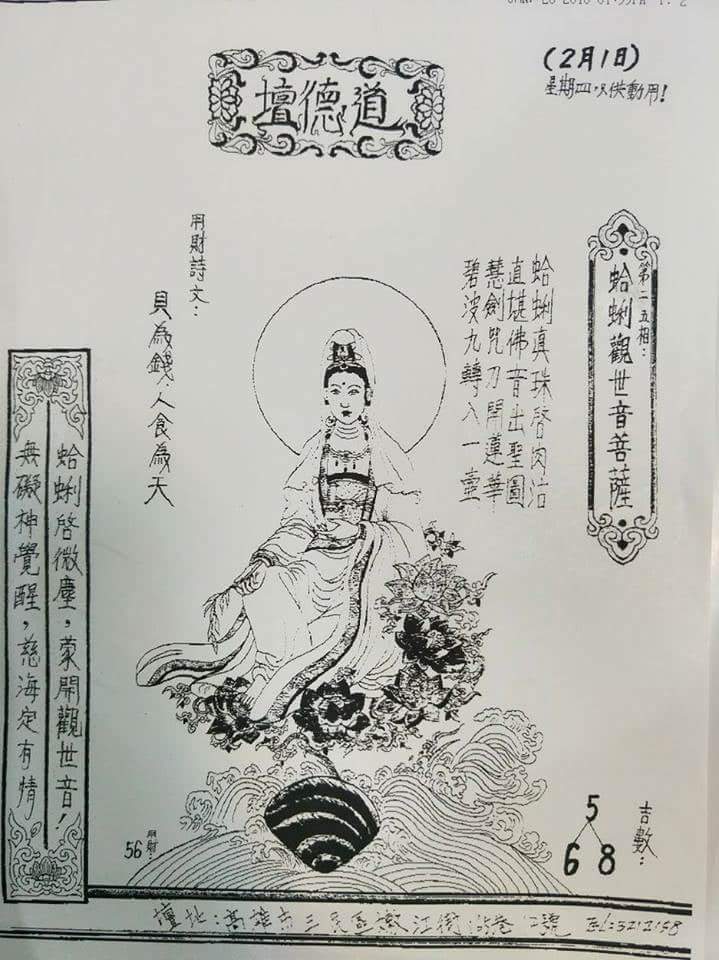 (2月1日)
星期四只供動用!
道德壇
第二五相：
蛤蜊觀世音菩薩
蛤蜊真珠啓肉治
直堪佛音出聖圖
慧劍咒刀開蓮華
碧波九轉入一壺
用財詩文：
貝為錢，人食為天
蛤蜊啓微塵，蒙開觀世音！
無礙神覺醒，慈海定有情
吉數：
5
6 8
用財：
56
壇址：高雄市三民區嫩江街